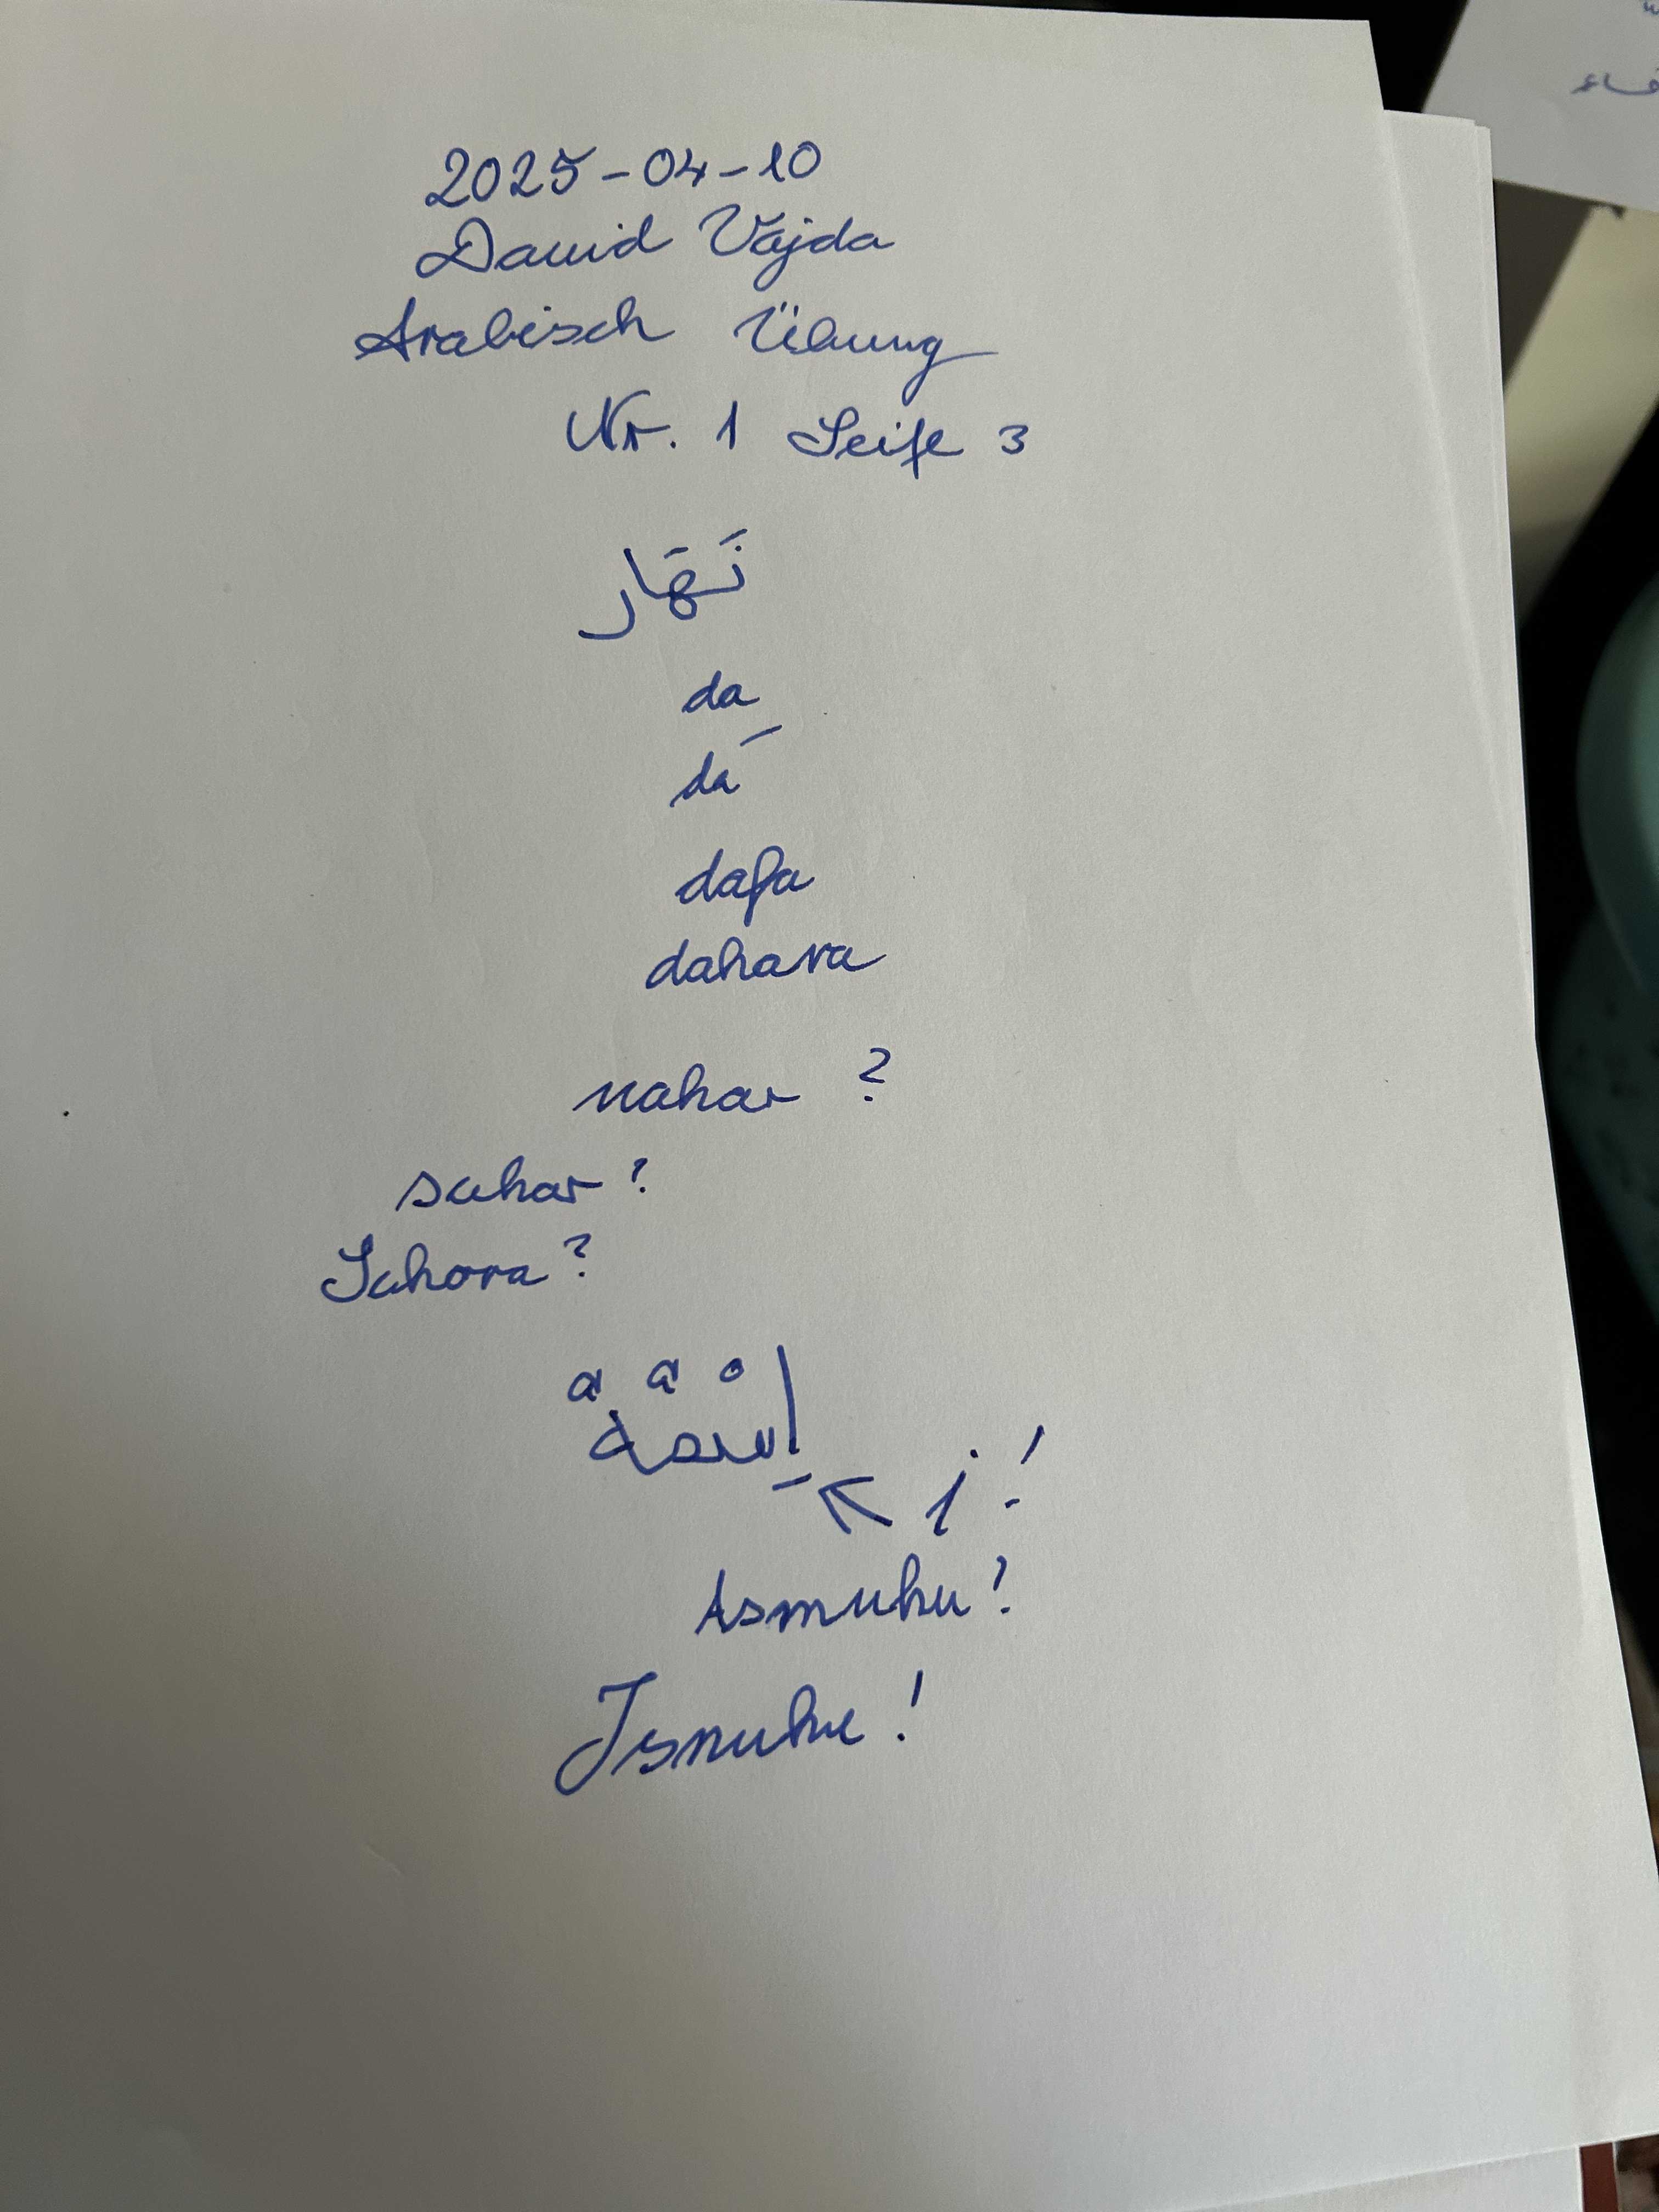 2025-04-10
David Vajda
Arabisch Übung
Nr. 1 Seite 3
نَهَار
da
da
dafa
dahara
nahar ?
suhar ?
Suhora ?
اسمه
i !
Asmuhu ?
Ismuhu !